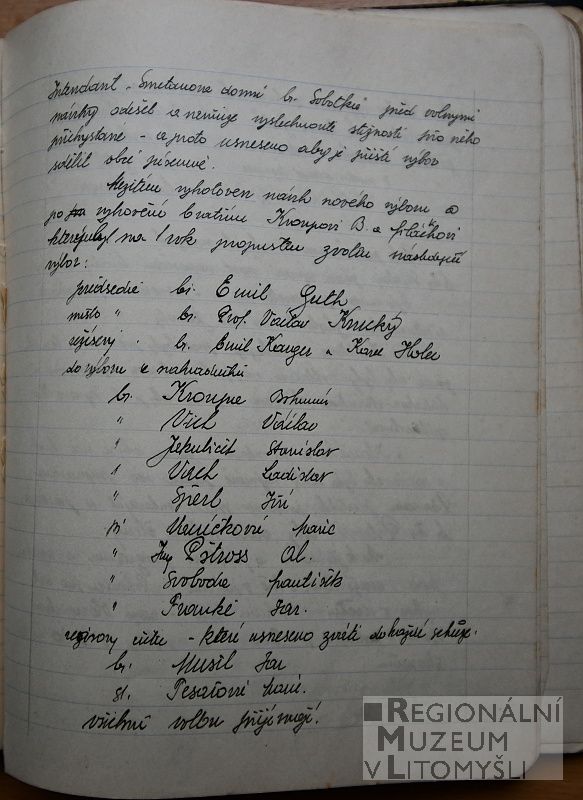 Intendant „Smetanova domu" br. Sobotka před volnými
návrhy odešel a nemůže vyslechnouti stížnosti pro něho
přichystané – a proto usneseno aby je příští výbor
sdělil obci písemně.
Mezitím vyhotoven návrh nového výboru a
po vyhovění bratřím Kroupovi B. a
na 1 rok propustiti zvolen následující
výbor:
předseda br. Emil Guth
místo " br. Prof. Václav Krucký
režiséry . br. Emil Kanger a Karel Holec
do výboru a náhradníků
br. Kroupa Bohumír
" Vích Václav
" Jekuličit Stanislav
" Vích Ladislav
" Šperl Jiří
" Ing Pštross Al.
" Svoboda František
" Franke Jar.
revisory účtů – které usneseno zváti do každé schůze.
br. Musil Jar
st. Pesařová Marie.
všichni volbu přijímají.
REGIONÁLNÍ
MUZEUM
V LITOMYŠLI